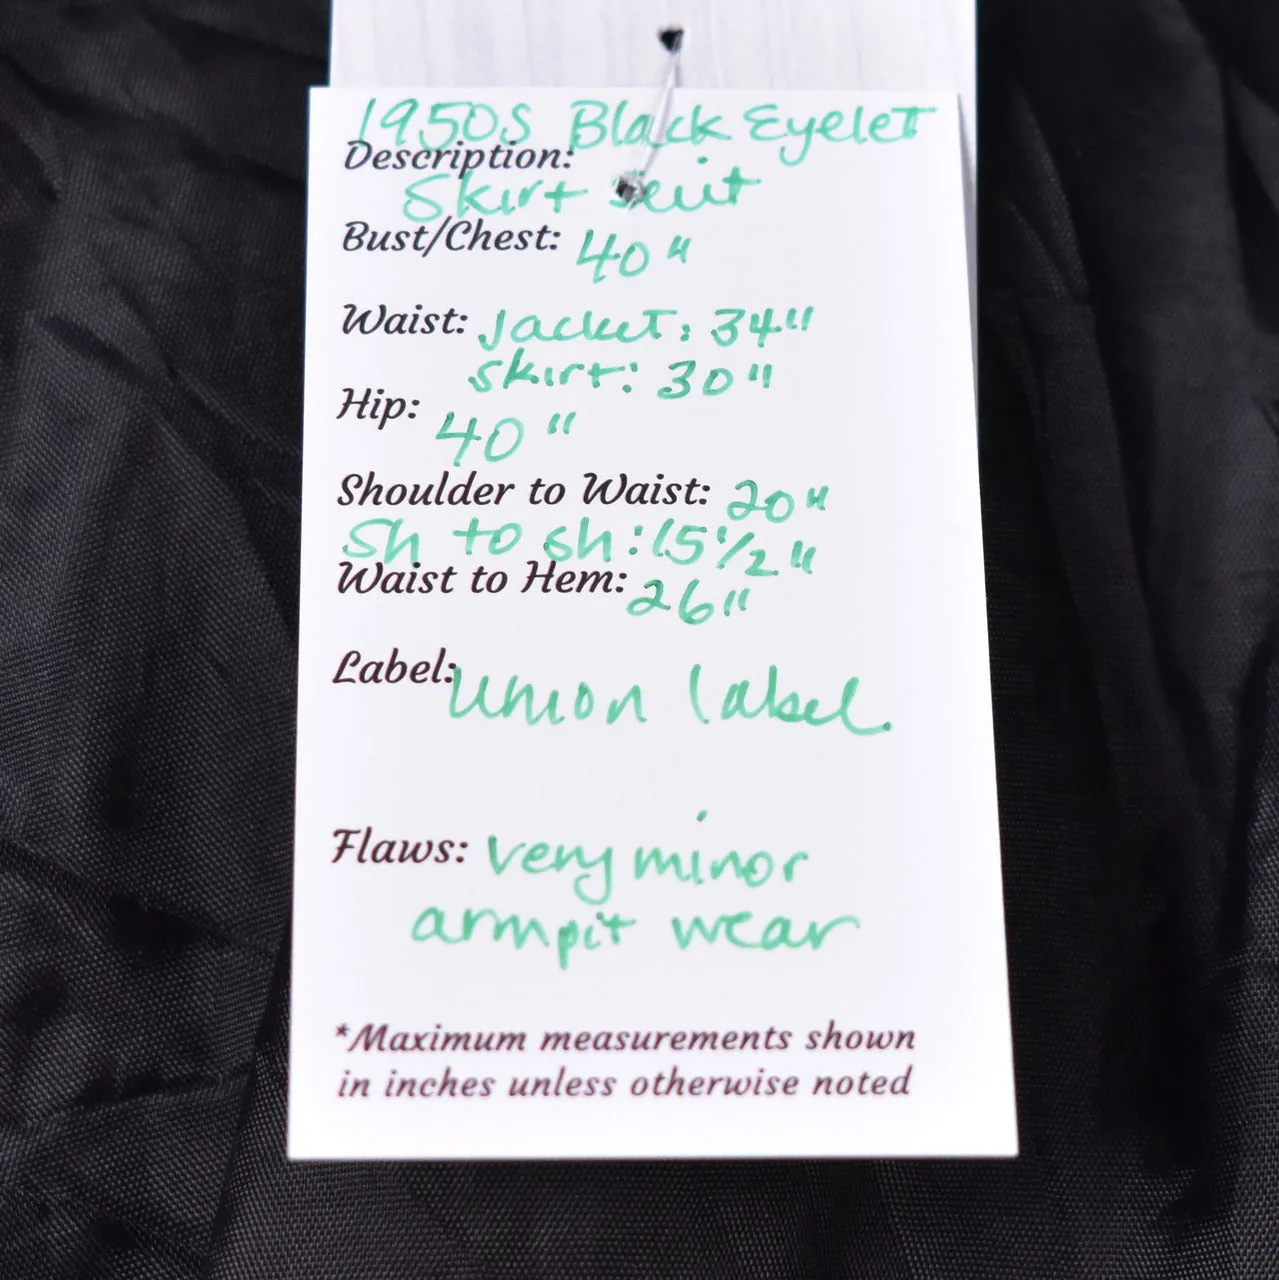 1950s Black Eyelet
Description:
Skirt suit
Bust/Chest: 40"
Waist: Jacket: 34"
skirt: 30"
Hip: 40"
Shoulder to Waist: 20"
Sh to sh: 15 1/2"
Waist to Hem: 26"
Label: Union label.
Flaws: very minor
armpit wear
*Maximum measurements shown
in inches unless otherwise noted